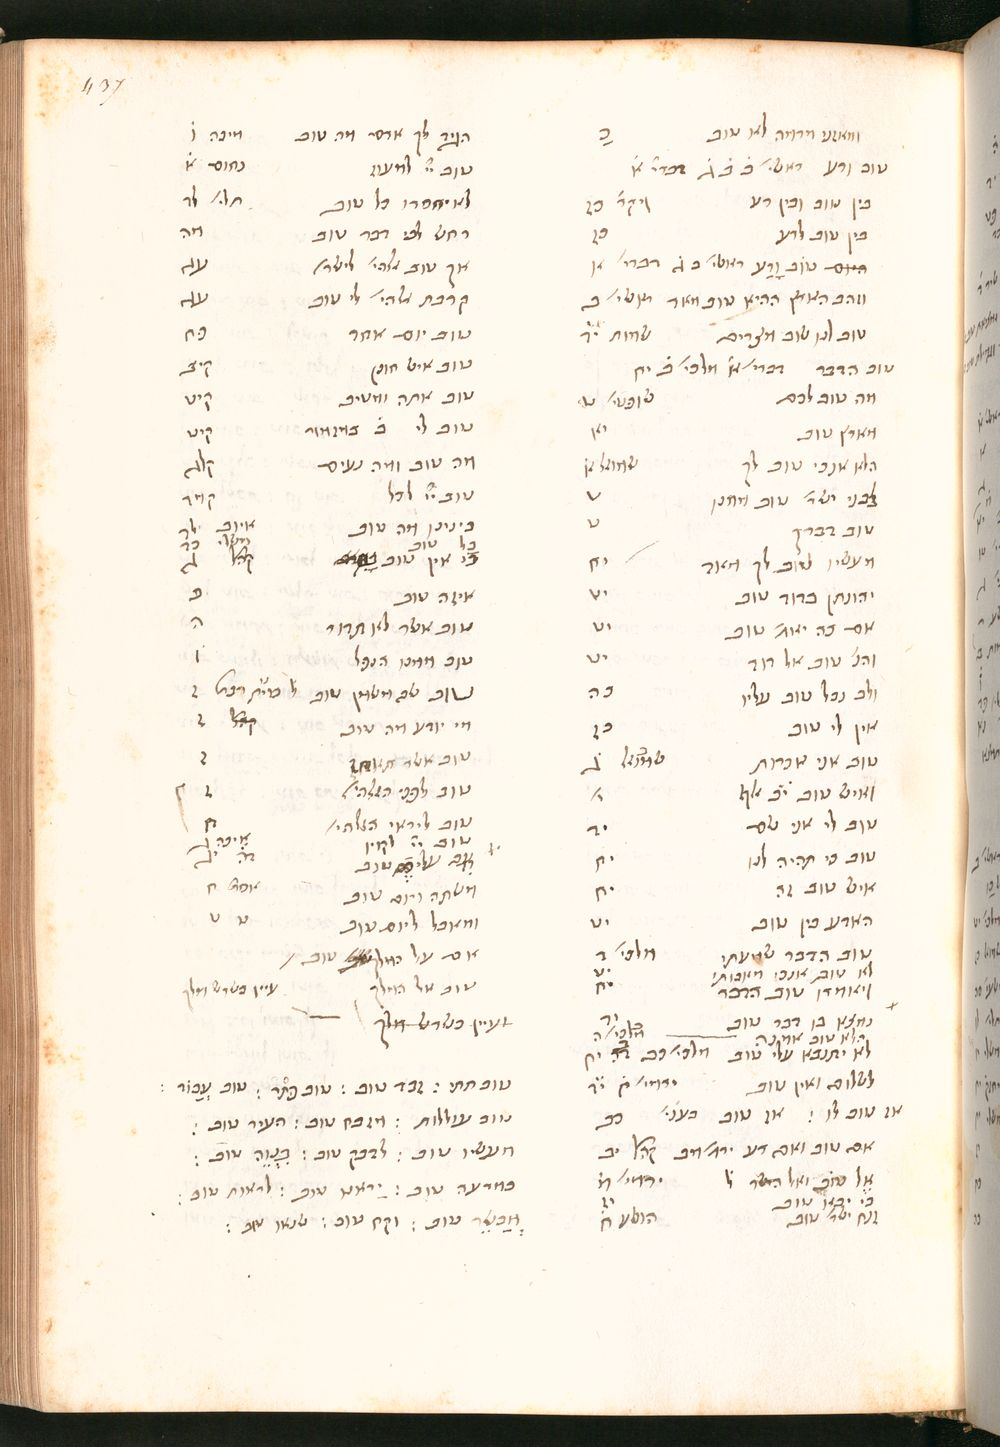 437
ומאזני מרמה לא טוב ב
טוב ורע ראשי׳ ב ב ג דברי׳ א
בין טוב ובין רע ויקר׳ כז
בין טוב לרע כז
היום טוב ורע ראשי׳ ב ג דברי׳ א
וזהב הארץ ההיא טוב מאד ראשי׳ ב
טוב לנו שוב מצרים שמות יד
טוב הדבר דברי׳ א מלכי׳ ב יח
מה טוב לכם שופטי׳ ט
מארץ טוב יא
הלא אנכי טוב לך שמואל א
מבני ישר׳ טוב ממנו ט
טוב דברך ט
מעשיו טוב לך מאד יט
יהונתן בדוד טוב יט
אם כה יאמ׳ טוב
והנ׳ טוב אל דוד
ולב נבל טוב עליו כה
אין לי טוב כז
טוב אני אכרות שמואל ב ג
ואיש טוב
טוב לי אני שם יד
טוב כי תהיה לנו יח
איש טוב זה יח
הארע בין טוב יט
טוב הדבר שמעתי מלכי׳
לא טוב אנכי מאבותי יט
ויאמרו טוב הדבר יח
נמצא בו דבר טוב יד
לא יתנבא עלי טוב מלכי׳ כב יח
לשלום ואין טוב ירמי׳ ח יד
אז טוב לי : או טוב
אם טוב ואם רע ירמי׳ מב קהל׳ יב
אל טוב ואל ירמי׳
כי יבא טוב יז
זנח ישר׳ טוב הושע ח
הגיד לך אדם מה טוב מיכה ו
טוב יי׳ למעוז נחום א
לא יחסרו כל טוב תלי׳ לד
רחש לבי דבר טוב מה
אך טוב אלהי׳ לישר׳ עג
קרבת אלהי׳ לי טוב עג
טוב יום אחד פח
טוב איש חונן קיב
טוב אתה ומטיב קיט
טוב לי ב במזמור קיט
מה טוב ומה נעים קלג
טוב יי׳ לכל קמה
בינינו מה טוב איוב לד
כל טוב
כי אין טוב קהל׳ ג
איזה טוב
טוב אשר לא תדור ה
טוב ממנו הנפל ו
טוב שם משמן טוב ז
מי יודע מה טוב קהל׳
טוב אשר תאחז ז
טוב לפני האלהי׳ ז
טוב ליראי האלהי׳ ח
טוב יי׳ לקויו איכה ג
משתה ויום טוב אסת׳ ח
ומאכל ליום טוב ט ט
אם על המלך טוב
טוב אל המלך עיין בשרש מלך
ועיין בשרש מלך
טוב תתי : זבד טוב : טוב פתר : טוב עבור :
טוב עוללות : מזבח טוב : העיר טוב :
מעשיו טוב : לדבק טוב : בנוה טוב :
במדעה טוב : יראנו טוב : לראות טוב :
מבשר טוב : וקח טוב : שנאו טוב :